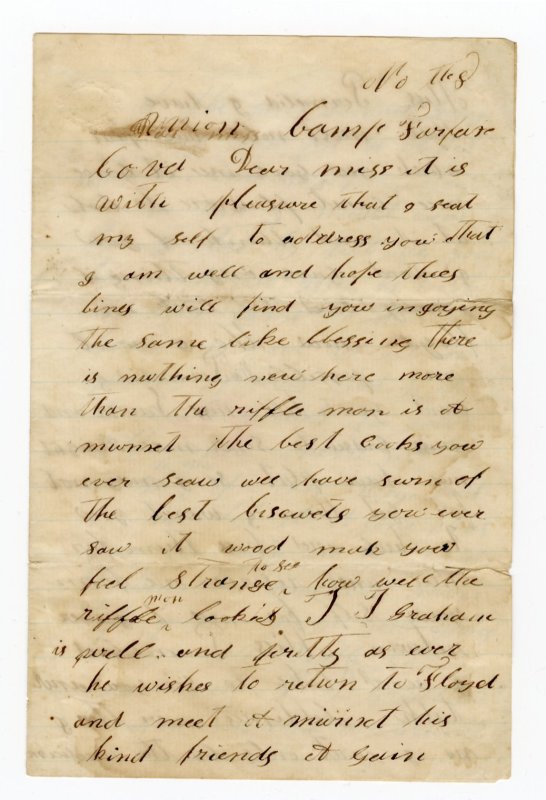 No the 8
Union Camp Farfax
Co va Dear miss it is
with pleasure that I seat
my self to address you that
I am well and hope thees
lines will find you in goying
the same like blessing there
is nuthing new here more
than the riffle mon is at
munset the best cooks you
ever seaw wee have sum of
the best biscwets you ever
saw it wood mak you
feel strange to see how well the
riffle mon cooks J J Graham
is well and pretty as ever
he wishes to return to Floyd
and meet at munset his
kind friends at Gain